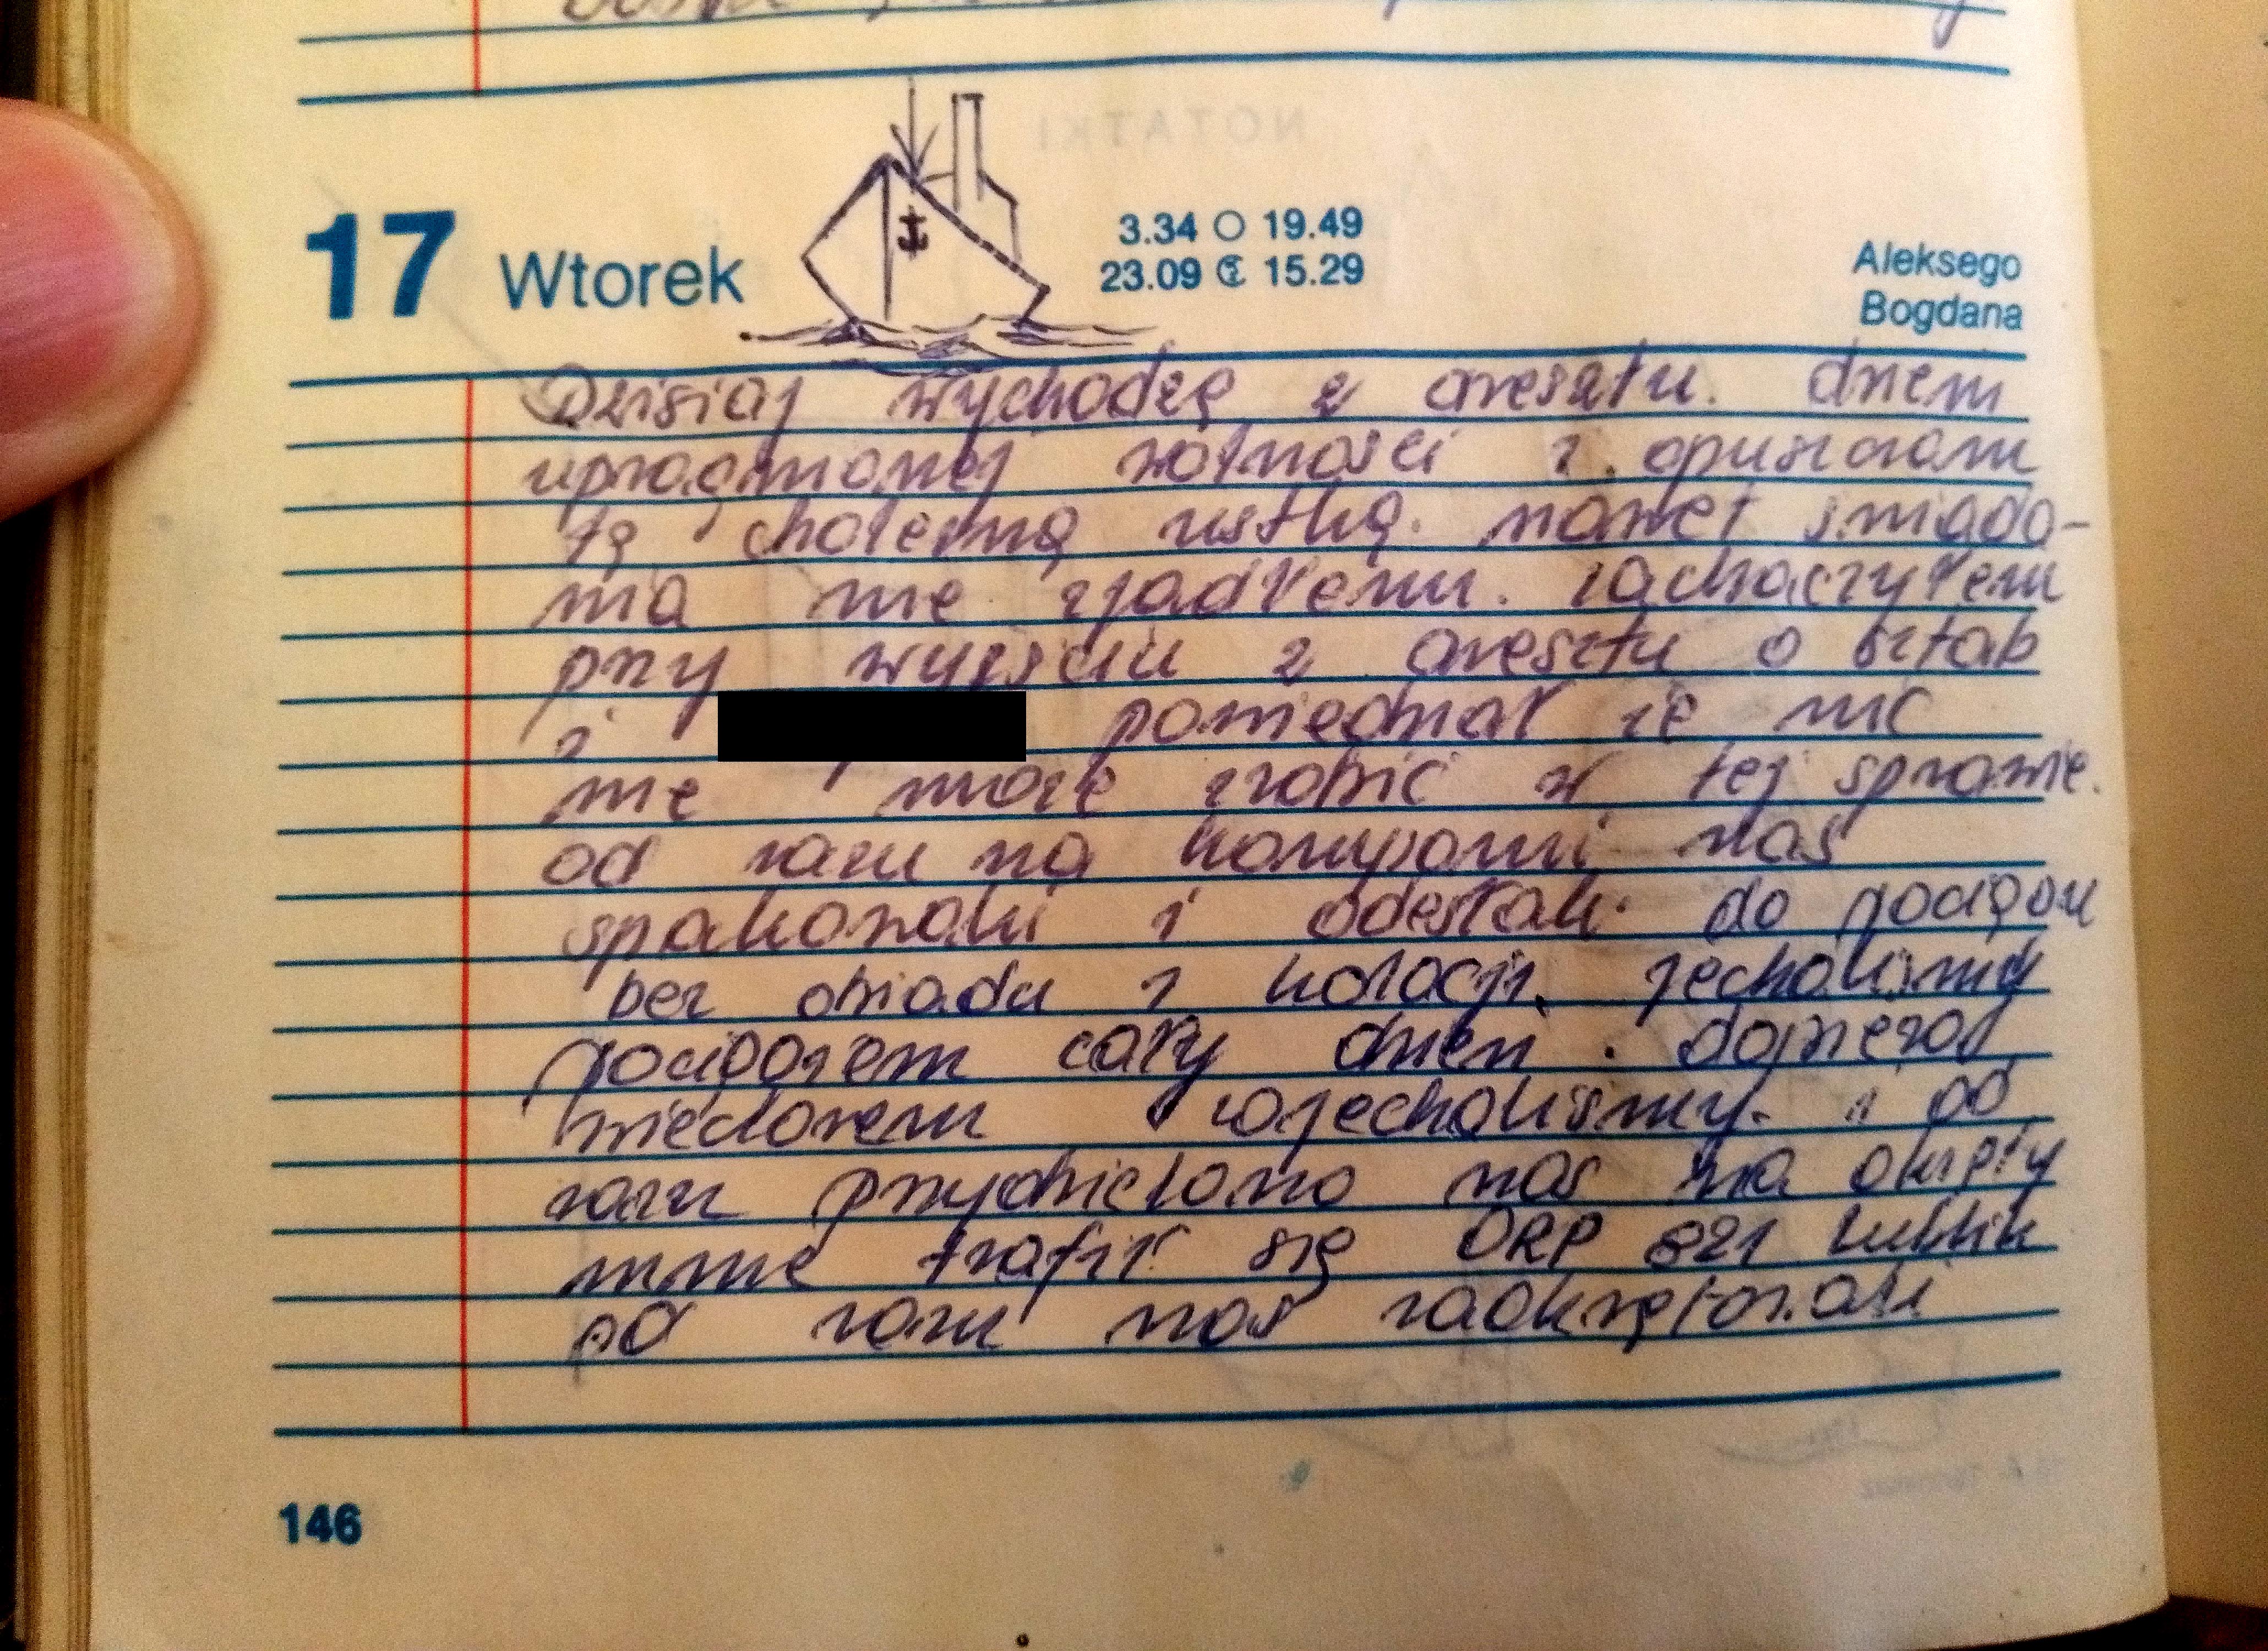 NOTATKI
17 Wtorek
3.34 19.49
23.09 15.29
Aleksego
Bogdana
Dzisiaj wychodzę z aresztu. dniem
upragnionej wolności i opuszczam
tą cholerną ustkę. nawet śniada-
nia nie zjadłem. zachaczyłem
przy wyjściu z aresztu o sztab
i powiedział że nic
nie może zrobić w tej sprawie.
od razu na kompanii nas
spakowali i odesłali do pociągu
bez obiadu i kolacji. jechaliśmy
pociągiem cały dzień. dopiero
wieczorem zajechaliśmy. i od
razu przydzielono nas na okręty
mnie trafił się ORP 821 Lublin
od razu nas zaokrętowali
146